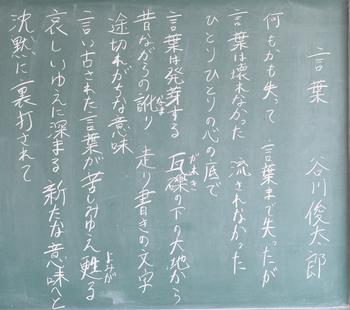 言葉　谷川俊太郎
何もかも失って　言葉まで失ったが
言葉は壊れなかった　流されなかった
ひとりひとりの心の底で
言葉は発芽する　瓦礫の下の大地から
がれき
昔ながらの訛り　走り書きの文字
なま
途切れがちな意味
言い古された言葉が苦しみゆえ甦る
よみが
哀しいゆえに深まる　新たな意味へと
沈黙に裏打ちされて